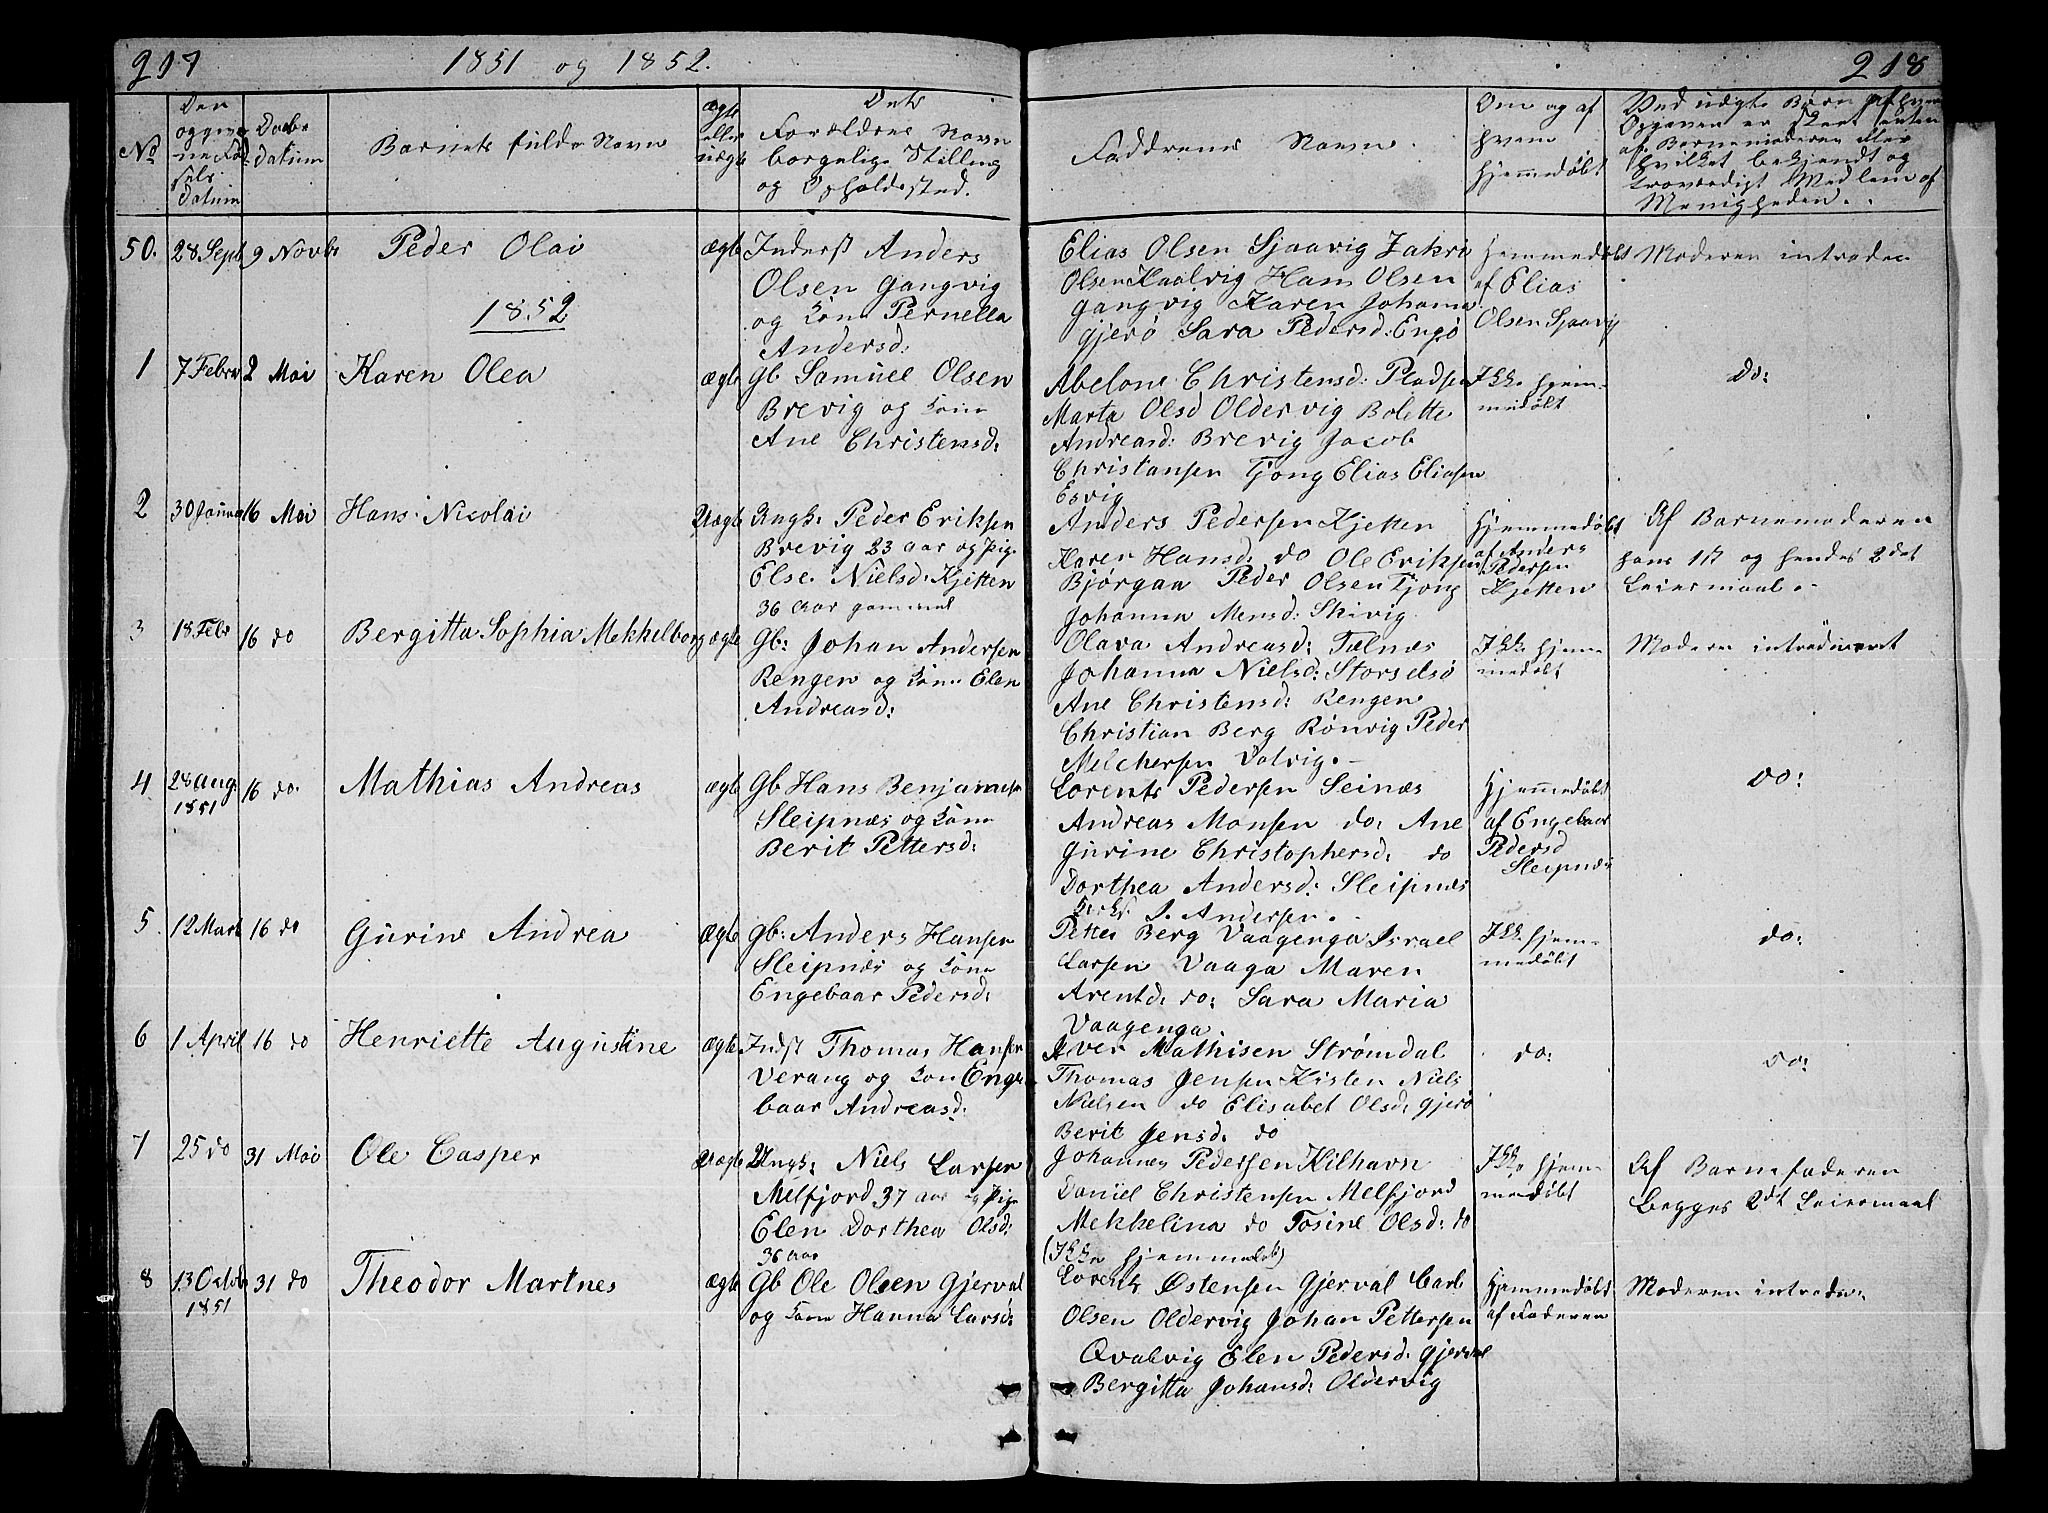 217
1851 og 1852.
218
No
Den opgivne Fødsels Datum
Daabs Datum
Barnets fulde Navn
ægte eller uægte
Dets Forældres Navn borgelige Stilling og Opholdssted.
Faddrenes Navne.
Om og af hvem hjemmedøbt
Ved uægte Børn af hvem Opgaven er skeet enten af Barnemoderen eller hvilket bekjendt og troværdigt Medlem af Menigheden.
50. 28 Sept 9 Novbr Peder Olai ægte Inderst Anders
Olsen Gangvig
og Kone Pernella
Andersd:
Elias Olsen Sjaavig Zakri
Olsen Kaalvig Hans Olsen
Gangvig Karen Johanna
Gjerø Sara Pedersd: Engø
Hjemmedøbt
af Elias
Olsen Sjaavig
Moderen introdu
1852
1 7 Febru 2 Mai Karen Olea ægte Gb Samuel Olsen
Brevig og Kone
Ane Christensd:
Abelone Christensd: Pladsen
Marta Olsd Oldervig Bolette
Andreasd: Brevig Jacob
Christansen Tjong Elias Eliasen
Esvig
Ikke hjem-
medøbt
do:
2 30 Januar 16 Mai Hans Nicolai Uægte Ungk: Peder Eriksen
Brevig 23 aar og Pig.
Else Nielsd: Kjetten
36 aar gammel
Anders Pedersen Kjetten
Karen Hansd: do Ole Eriksen
Bjørgaa Peder Olsen Tjong
Johanna Mensd: Skivig
Hjemmedøbt
af Anders
Pedersen
Kjetten
Af Barnemoderen
hans 1st og hendes 2det
Leiermaal.
3 18 Febr 16 do Bergitta Sophia Mekkelborg ægte Gb: Johan Andersen
Rengen og Kone Elen
Andreasd:
Olava Andreasd: Telnæs
Johanna Nielsd: Storselsø
Ane Christensd: Rengen
Christian Berg Rønvig Peder
Melchersen Valvig.
Ikke hjem-
medøbt
Moderen introduceret
4 28 Aug. 1851 16 do. Mathias Andreas ægte Gb Hans Benjamsn
Sleipnæs og Kone
Berit Pettersd:
Lorents Pedersen Seinæs
Andreas Monsen do: Ane
Gurine Christophersd: do
Dorthea Andersd: Sleipnæs
Kirks. J. Andersen.
Hjemmedøbt
af Engebaar
Pedersd
Sleipnæs
do:
5. 12 Mart 16 do Gurine Andrea ægte Gb: Anders Hansen
Sleipnæs og Kone
Engebaar Pedersd:
Petter Berg Vaagenga Israel
Larsen Vaaga Maren
Arentd: do: Sara Maria
Vaagenga.
Ikke hjem-
medøbt
do:
6 1 April 16 do Henriette Augustine ægte Indst Thomas Hansen
Verang og Kone Enge
baar Andreasd:
Iver Mathisen Strømdal
Thomas Jensen Kisten Niels
Nielsen do Elisabet Olsd: Gjerø
Berit Jensd: do
do:
do:
7 25 do 31 Mai Ole Casper Uægte Ungk: Niels Larsen
Melfjord 37 aar og Pige
Elen Dorthea Olsd:
36 aar
Johannes Pedersen Kilhavn
Daniel Christensen Melfjord
Mekkelina do Tosine Olsd: do
(Ikke hjemmedøbt)
Ikke hjem-
medøbt
Af Barnefaderen
Begges 2det Leiermaal
8 13 Octob 1851 31 do Theodor Martnes ægte Gb Ole Olsen Gjerval
og Kone Hanna Larsd:
Lorents Østensen Gjerval Carl
Olsen Oldervig Johan Pettersen
Qvalvig Elen Pedersd: Gjerval
Bergitta Johansd: Oldervig
Hjemmedøbt
af Faderen
Moderen introdu: